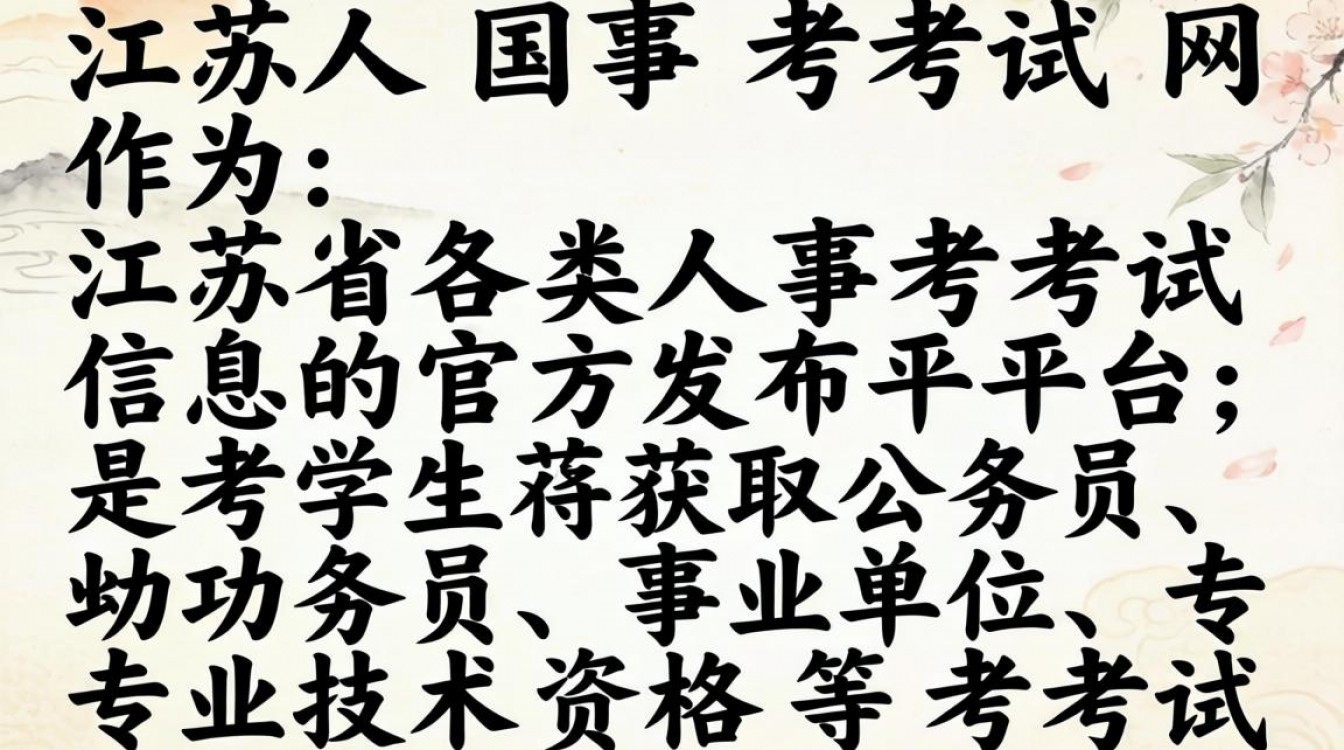 江苏人 国事 考考试 网
作为：
江苏省各类人事考考试
信息的官方发布平平台；
是考学生获取公务员、
功务员、事业单位、专
专业技术 资格 等 考考试